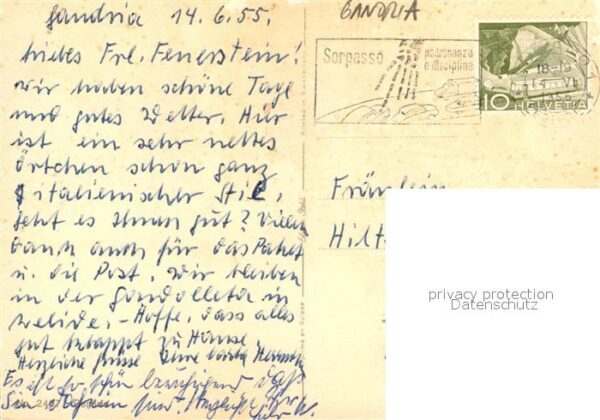 Gandria 14.6.55.
GANDRIA
Liebes Frl. Feuerstein!
wir haben schöne Tage
und gutes Wetter. Hier
ist ein sehr nettes
Örtchen schon ganz
italienischer Stil,
geht es Ihnen gut? Vielen
Dank auch für das Paket
u. die Post, wir bleiben
in der Gondoletta in
– Hoffe, dass alles
gut klappt zu Hause.
Herzliche Grüsse Ihre
Es ist so schön beruhigend dass
Sie
Sorpasso
padronanza
e disciplina
18-19
10 HELVETIA
Fräulein
Hilt
privacy protection
Datenschutz